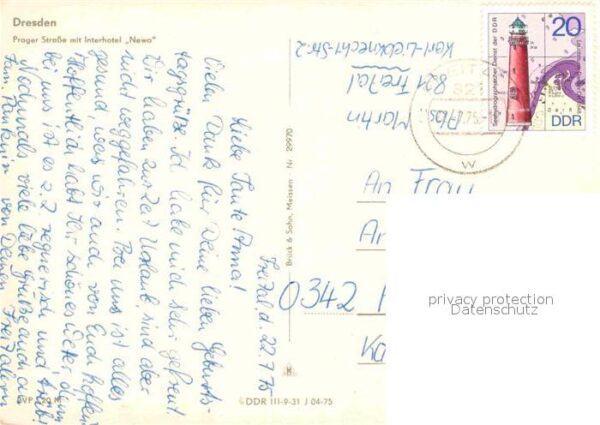 Dresden
Prager Straße mit Interhotel „Newa"
Freital d. 22.7.75
Liebe Tante Anna!
Vielen Dank für Deine lieben Geburts-
tagsgrüße. Ich habe mich sehr gefreut.
Wir haben zur Zeit Urlaub, sind aber
nicht weggefahren. Bei uns ist alles
gesund, was wir auch von Euch hoffen.
Hoffentlich habt Ihr schönes Wetter, denn
bei uns ist es z.Z. regnerisch und trüb
Nochmals viele liebe Grüße auch an
Fam. von Deinen Freitalern
EVP
Brück & Sohn, Meissen Nr. 299
DDR III-9-31 J 04-75
Abs. Martin
821 Freital
Karl-Liebknecht-Str. 2
20
DDR
Seehydrographischer Dienst der DDR
821
.75.-
w
An Frau
0342
privacy protection
Datenschutz